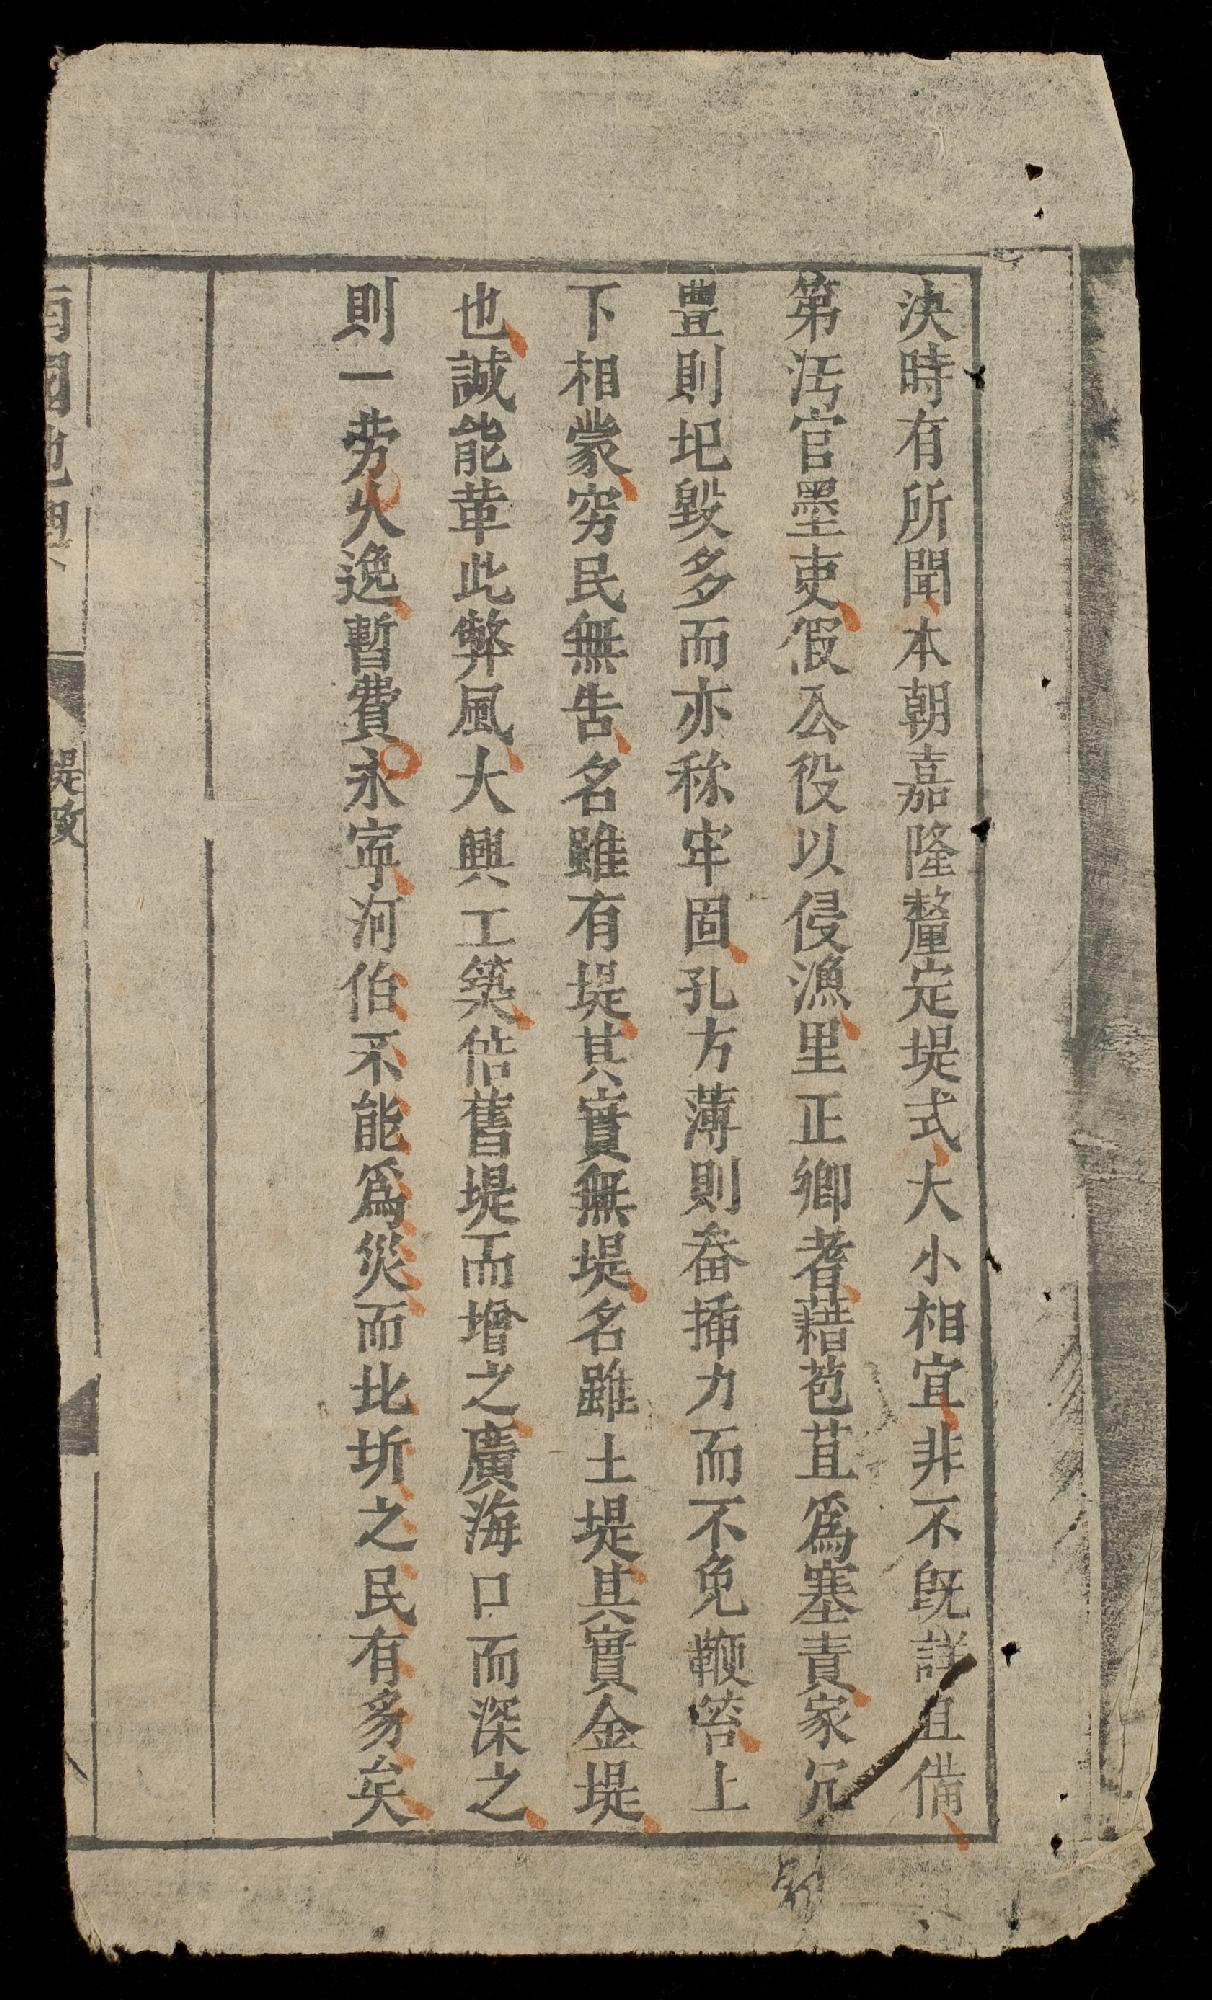 決時有所聞本朝嘉隆釐定堤式大小相宜非不既詳且備
第汚官墨吏假公役以侵漁里正鄉耆藉苞苴爲塞責家冗
豊則圯毀多而亦称牢固孔方薄則畚揷力而不免鞭笞上
下相蒙穷民無告名雖有堤其實無堤名雖土堤其實金堤
也誠能革此弊風大興工築倍舊堤而增之廣海口而深之
則一劳久逸暫費永寜河伯不能爲災而比圻之民有豸矣
國地輿
堤政